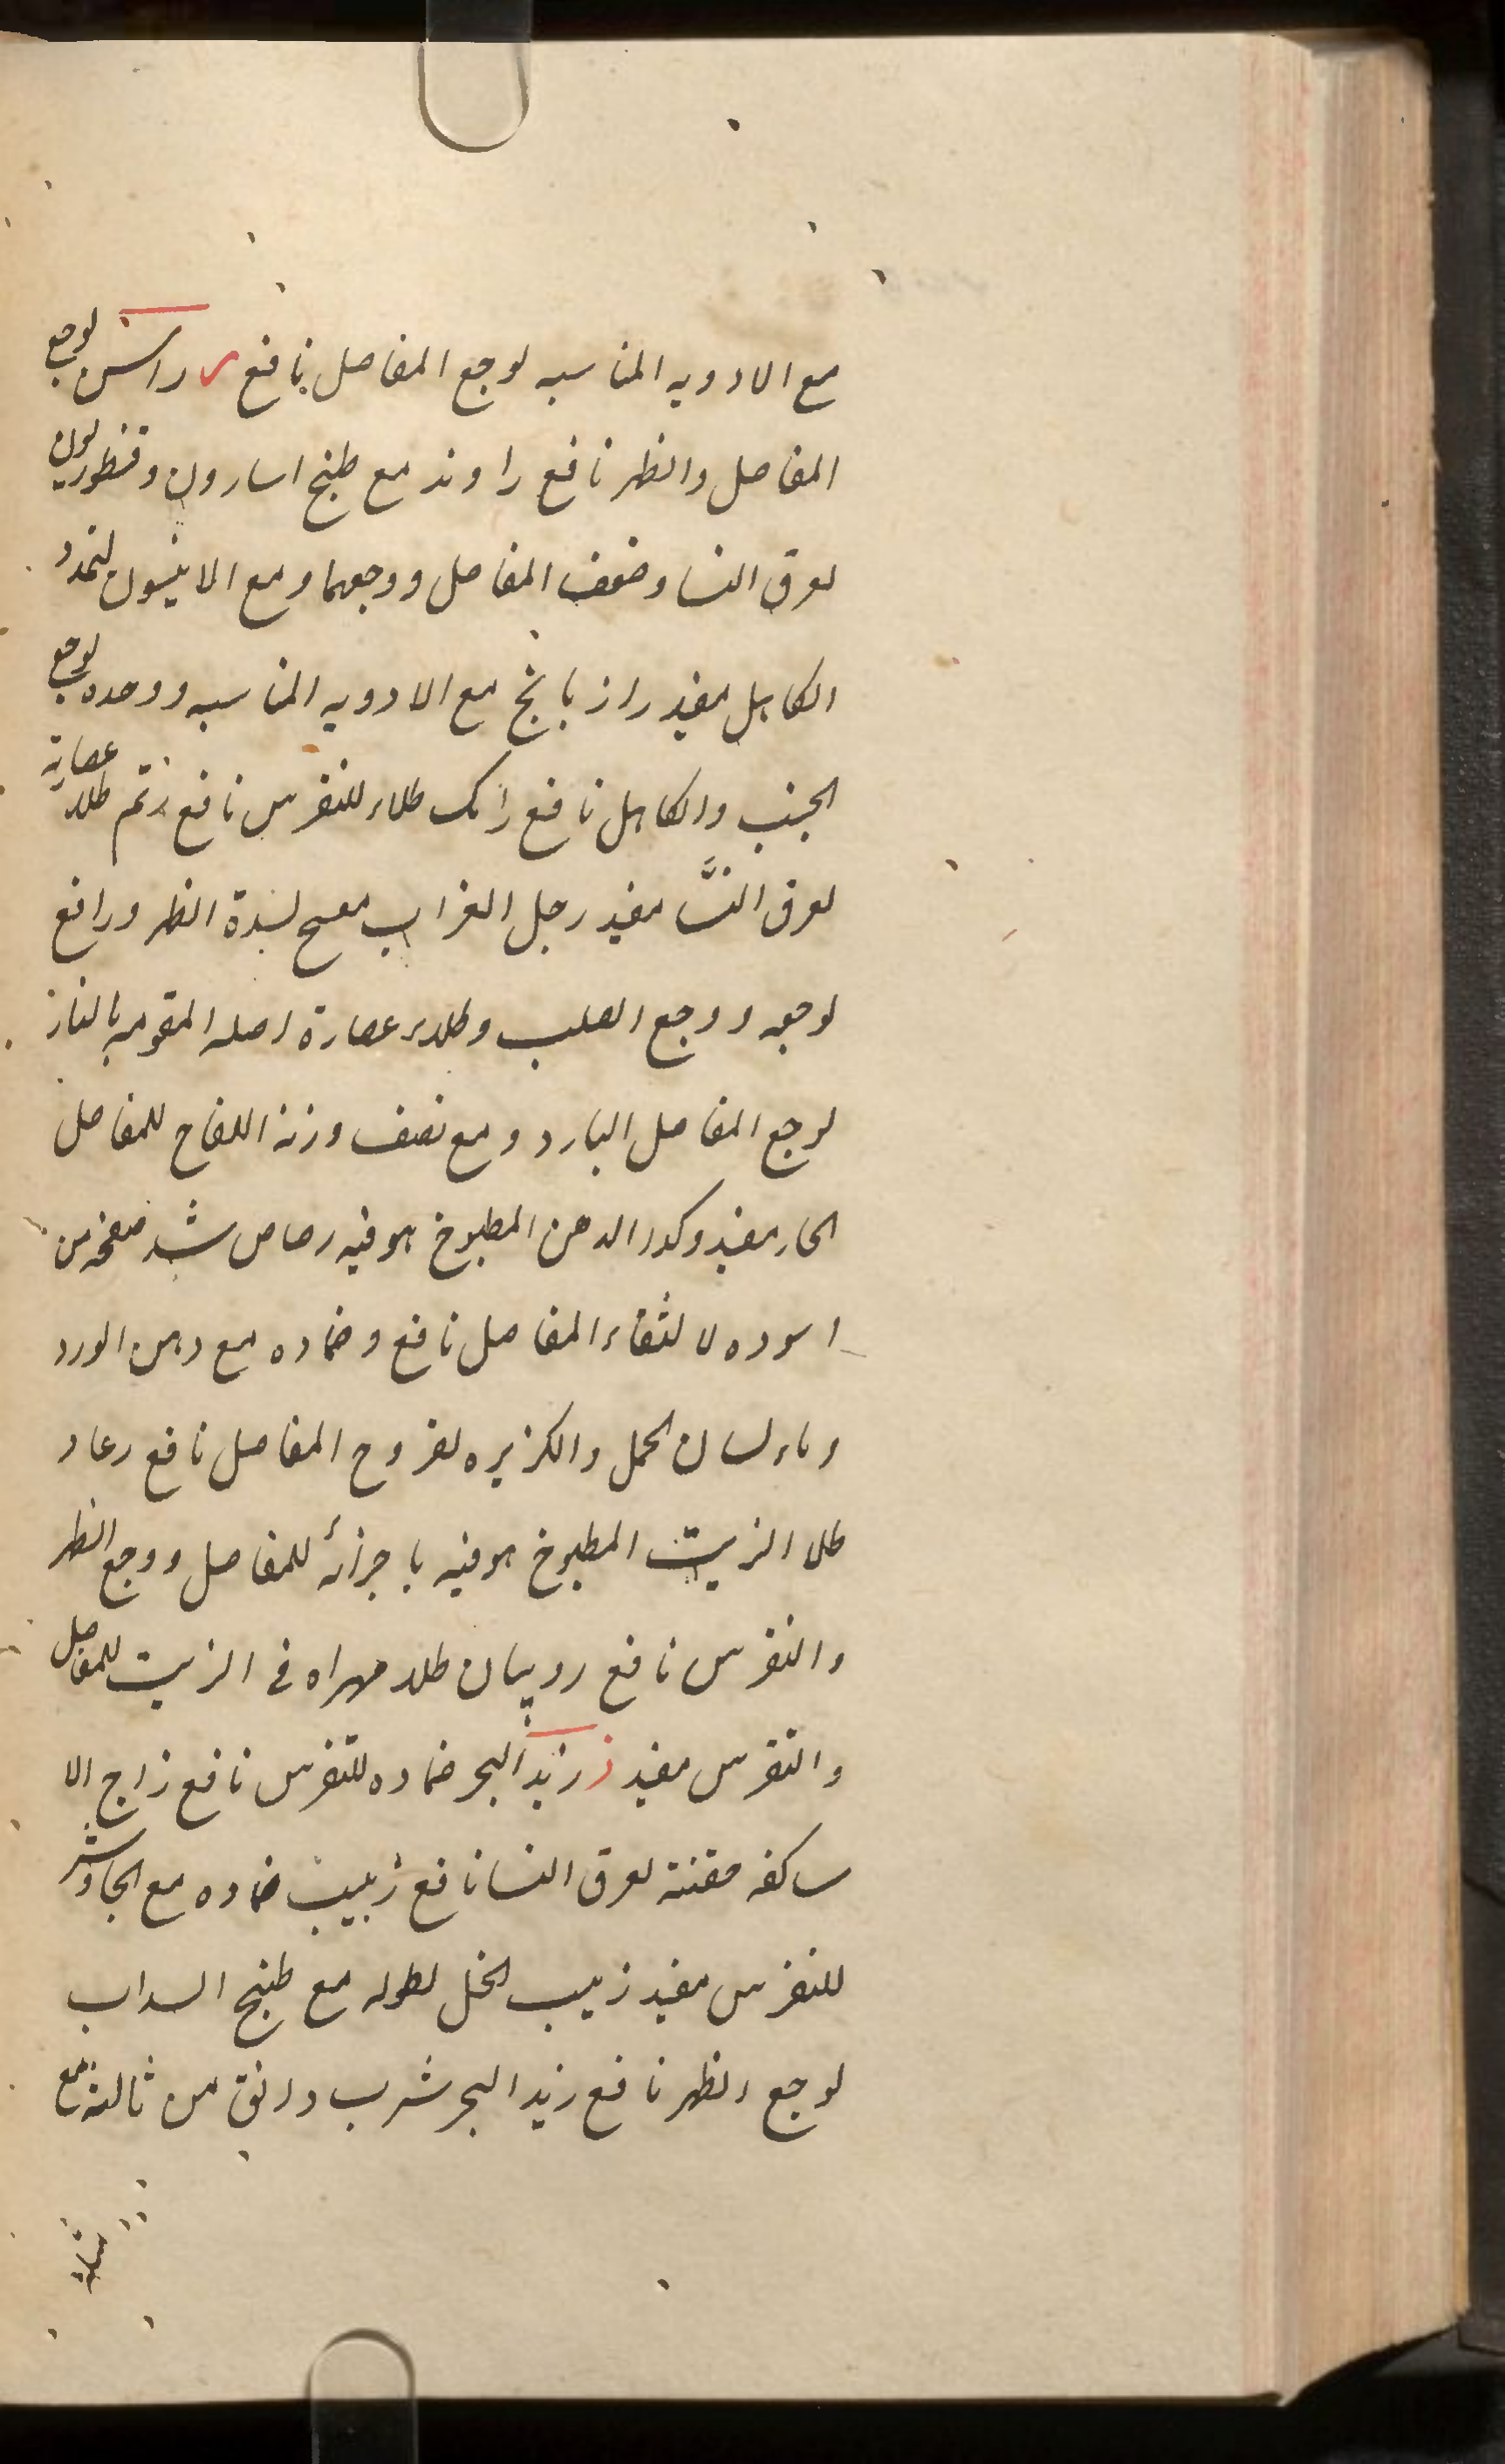 مع الادويه المناسبه لوجع المفاصل نافع ر راسن لوجع
المفاصل والظهر نافع راوند مع طبخ اسارون وقنطوريون
لعرق النسا وضعف المفاصل ووجعهما ومع الانيسون لتمدد
الكاهل مفيد رازيانج مع الادويه المناسبه ووحده لوجع
الجنب والكاهل نافع رامك طلاء للنقرس نافع رتم طلاء عصارته
لعرق النسَّا مفيد رجل الغراب لسدة الظهر ورافع
لوجعه ووجع الصلب وطلاء عصارة اصله المقومه بالنار
لوجع المفاصل البارد ومع نصف وزنه اللفاح للمفاصل
الحار مفيد وكذا الدهن المطبوخ هو فيه رصاص شد صفحه من
اسوده لالتواء المفاصل نافع وضماده مع دهن الورد
وماء لسان الحمل والكزبره لقروح المفاصل نافع رعاد
طلا الزيت المطبوخ هو فيه باجزائه للمفاصل ووجع الظهر
والنقرس نافع روبيان طلاء مهراه في الزيت للمفاصل
والنقرس مفيد ز زبد البحر ضماده للنقرس نافع زاج الا
ساكفه حقنته لعرق النسا نافع زبيب ضماده مع الجاوشير
للنقرس مفيد زبيب الخل نطوله مع طبخ السداب
لوجع الظهر نافع زبد البحر شرب دانق من ثالثه مع